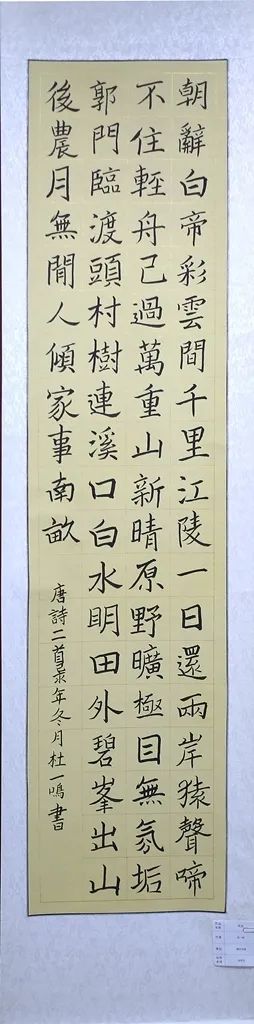 朝辭白帝彩雲間千里江陵一日還兩岸猿聲啼
不住輕舟已過萬重山新晴原野曠極目無氛垢
郭門臨渡頭村樹連溪口白水明田外碧峯出山
後農月無閒人傾家事南畝
唐詩二首年冬月杜一鳴書